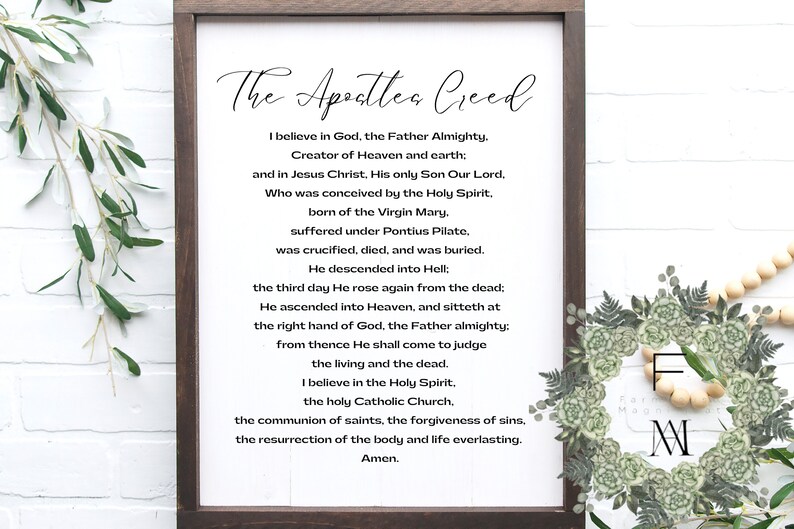 The Apostles Creed
I believe in God, the Father Almighty,
Creator of Heaven and earth;
and in Jesus Christ, His only Son Our Lord,
Who was conceived by the Holy Spirit,
born of the Virgin Mary,
suffered under Pontius Pilate,
was crucified, died, and was buried.
He descended into Hell;
the third day He rose again from the dead;
He ascended into Heaven, and sitteth at
the right hand of God, the Father almighty;
from thence He shall come to judge
the living and the dead.
I believe in the Holy Spirit,
the holy Catholic Church,
the communion of saints, the forgiveness of sins,
the resurrection of the body and life everlasting.
Amen.
F
M